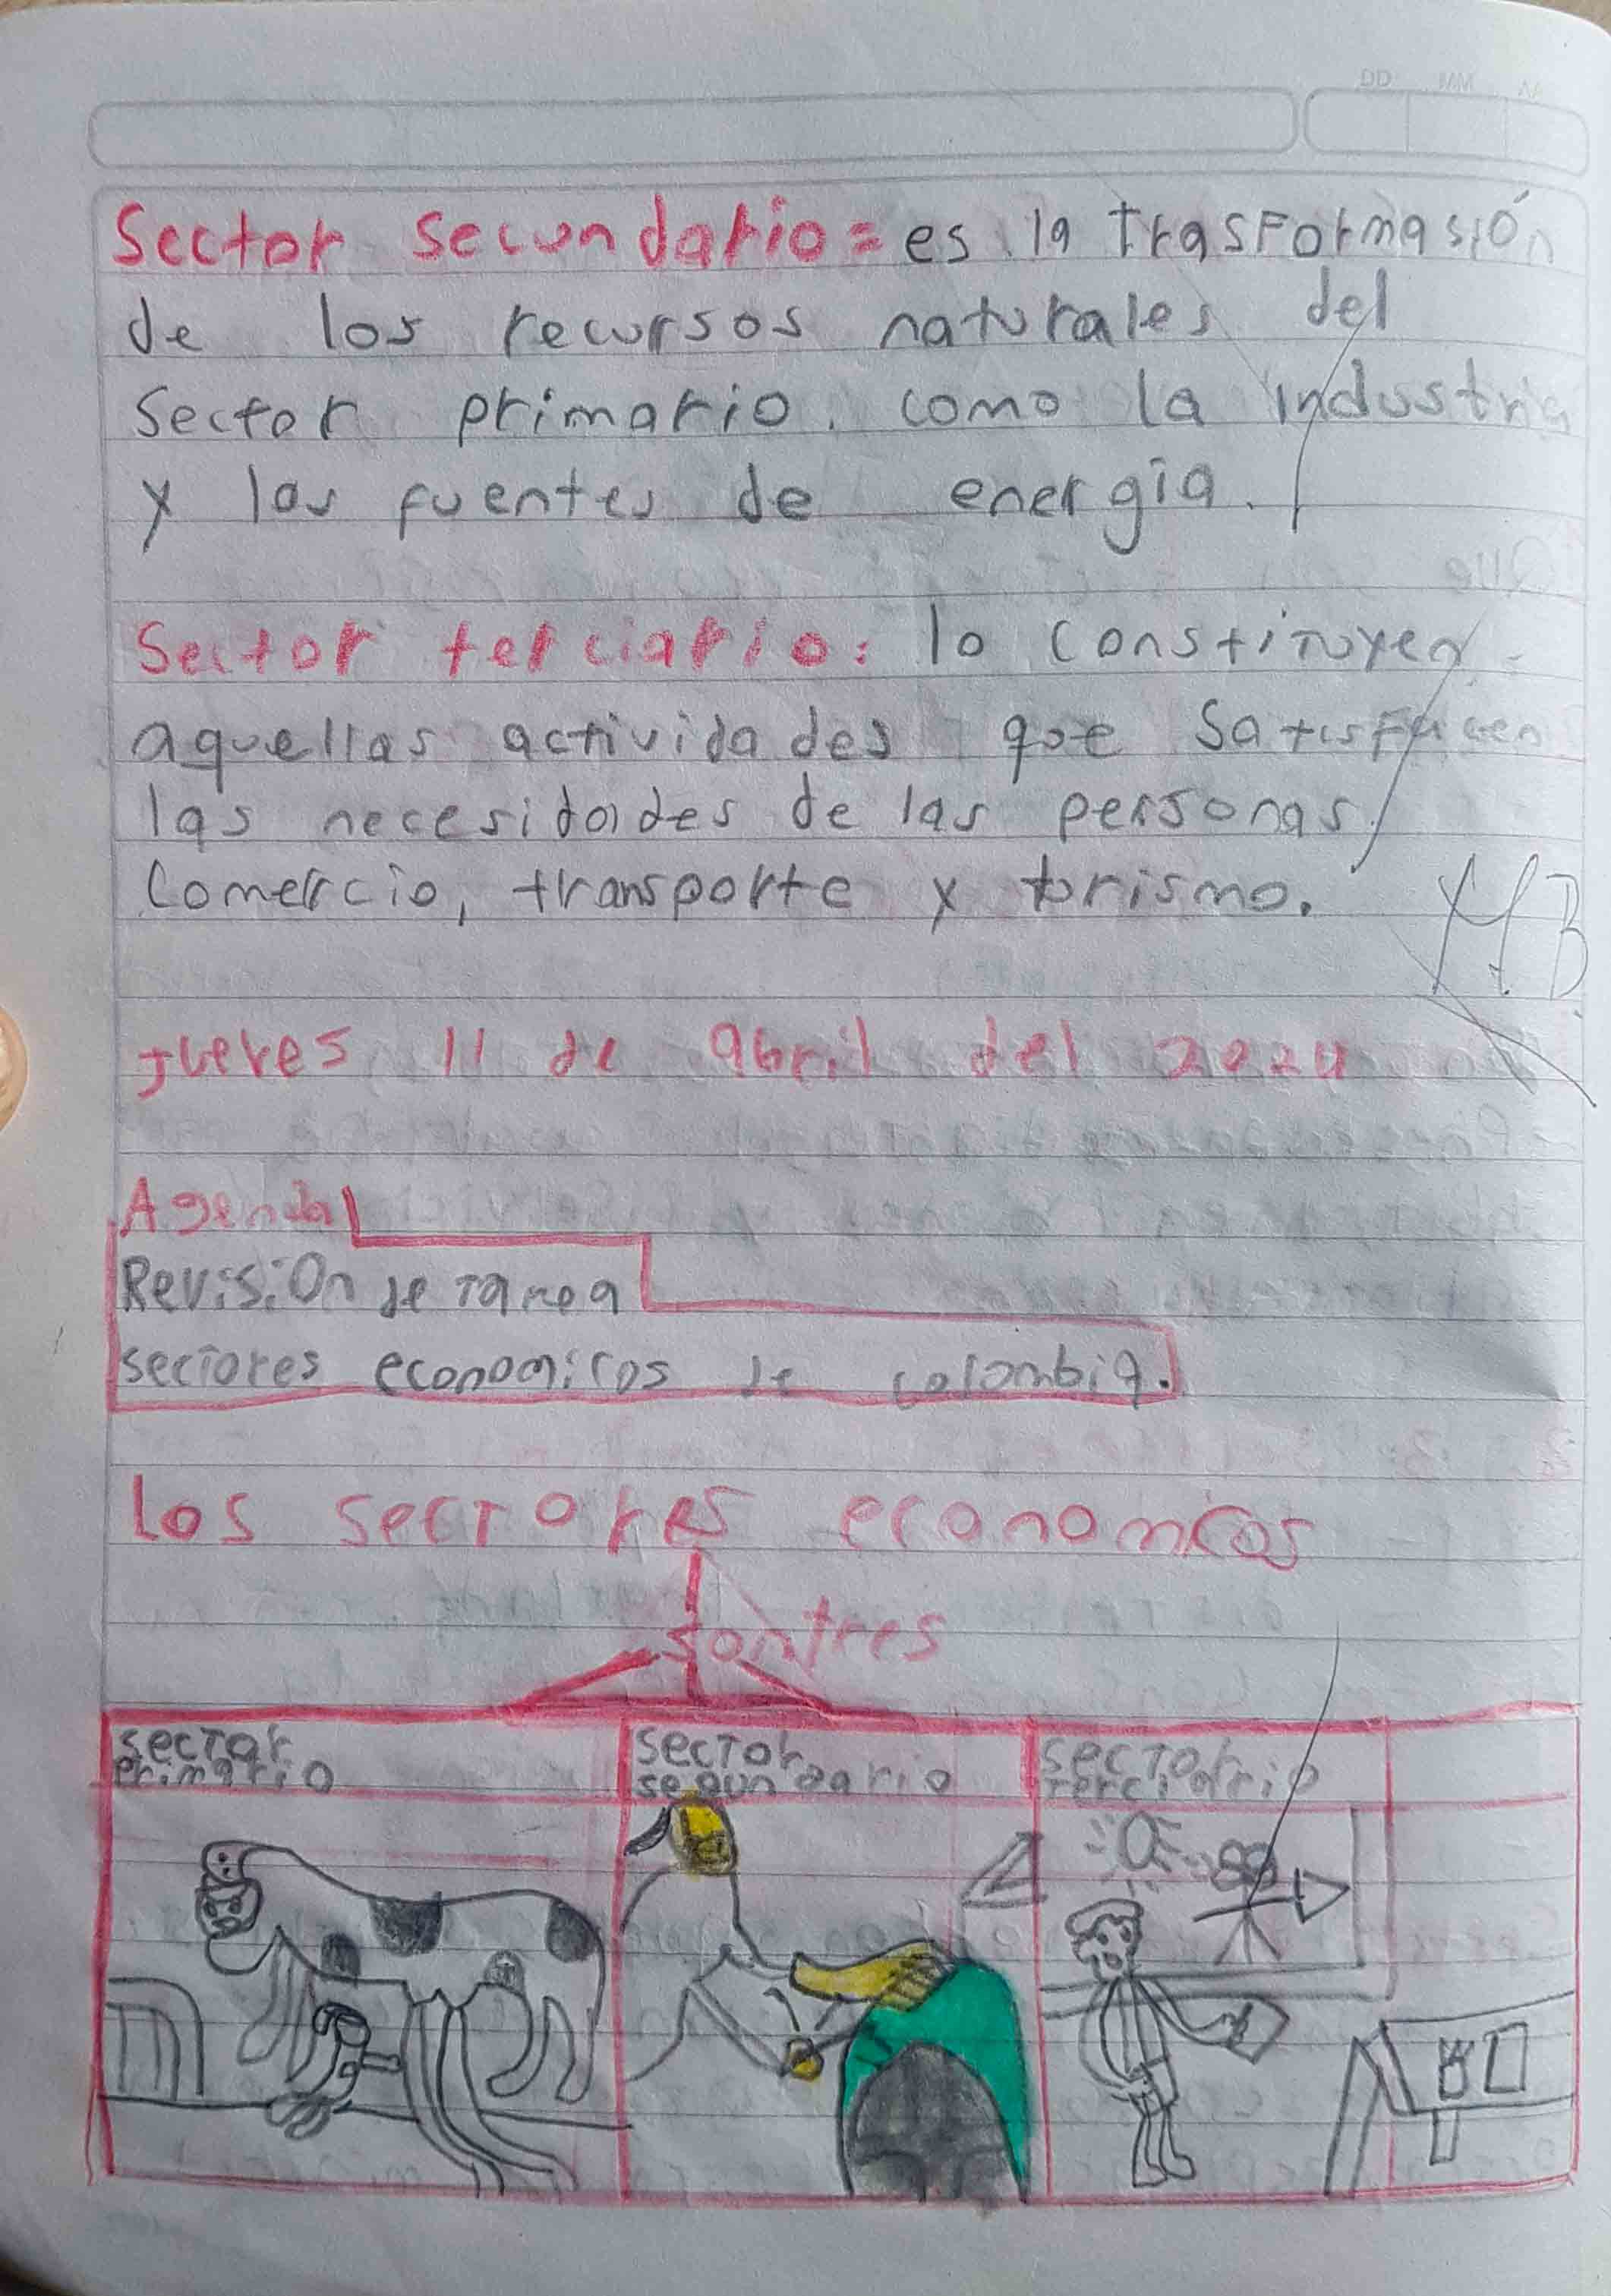 DD MM AA
Sector secundario = es la trasformasión
de los recursos naturales del
sector primario. como la industria
y las fuentes de energia.
Sector terciario: lo constituyen
aquellas actividades que satisfacen
las necesidades de las personas.
Comercio, transporte y torismo.
M.B
jueves 11 de abril del 2024
Agenda
Revisión de tarea
sectores economicos de colombia.
los sectores economicos
son tres
sector primario
sector segundario
sector terciario